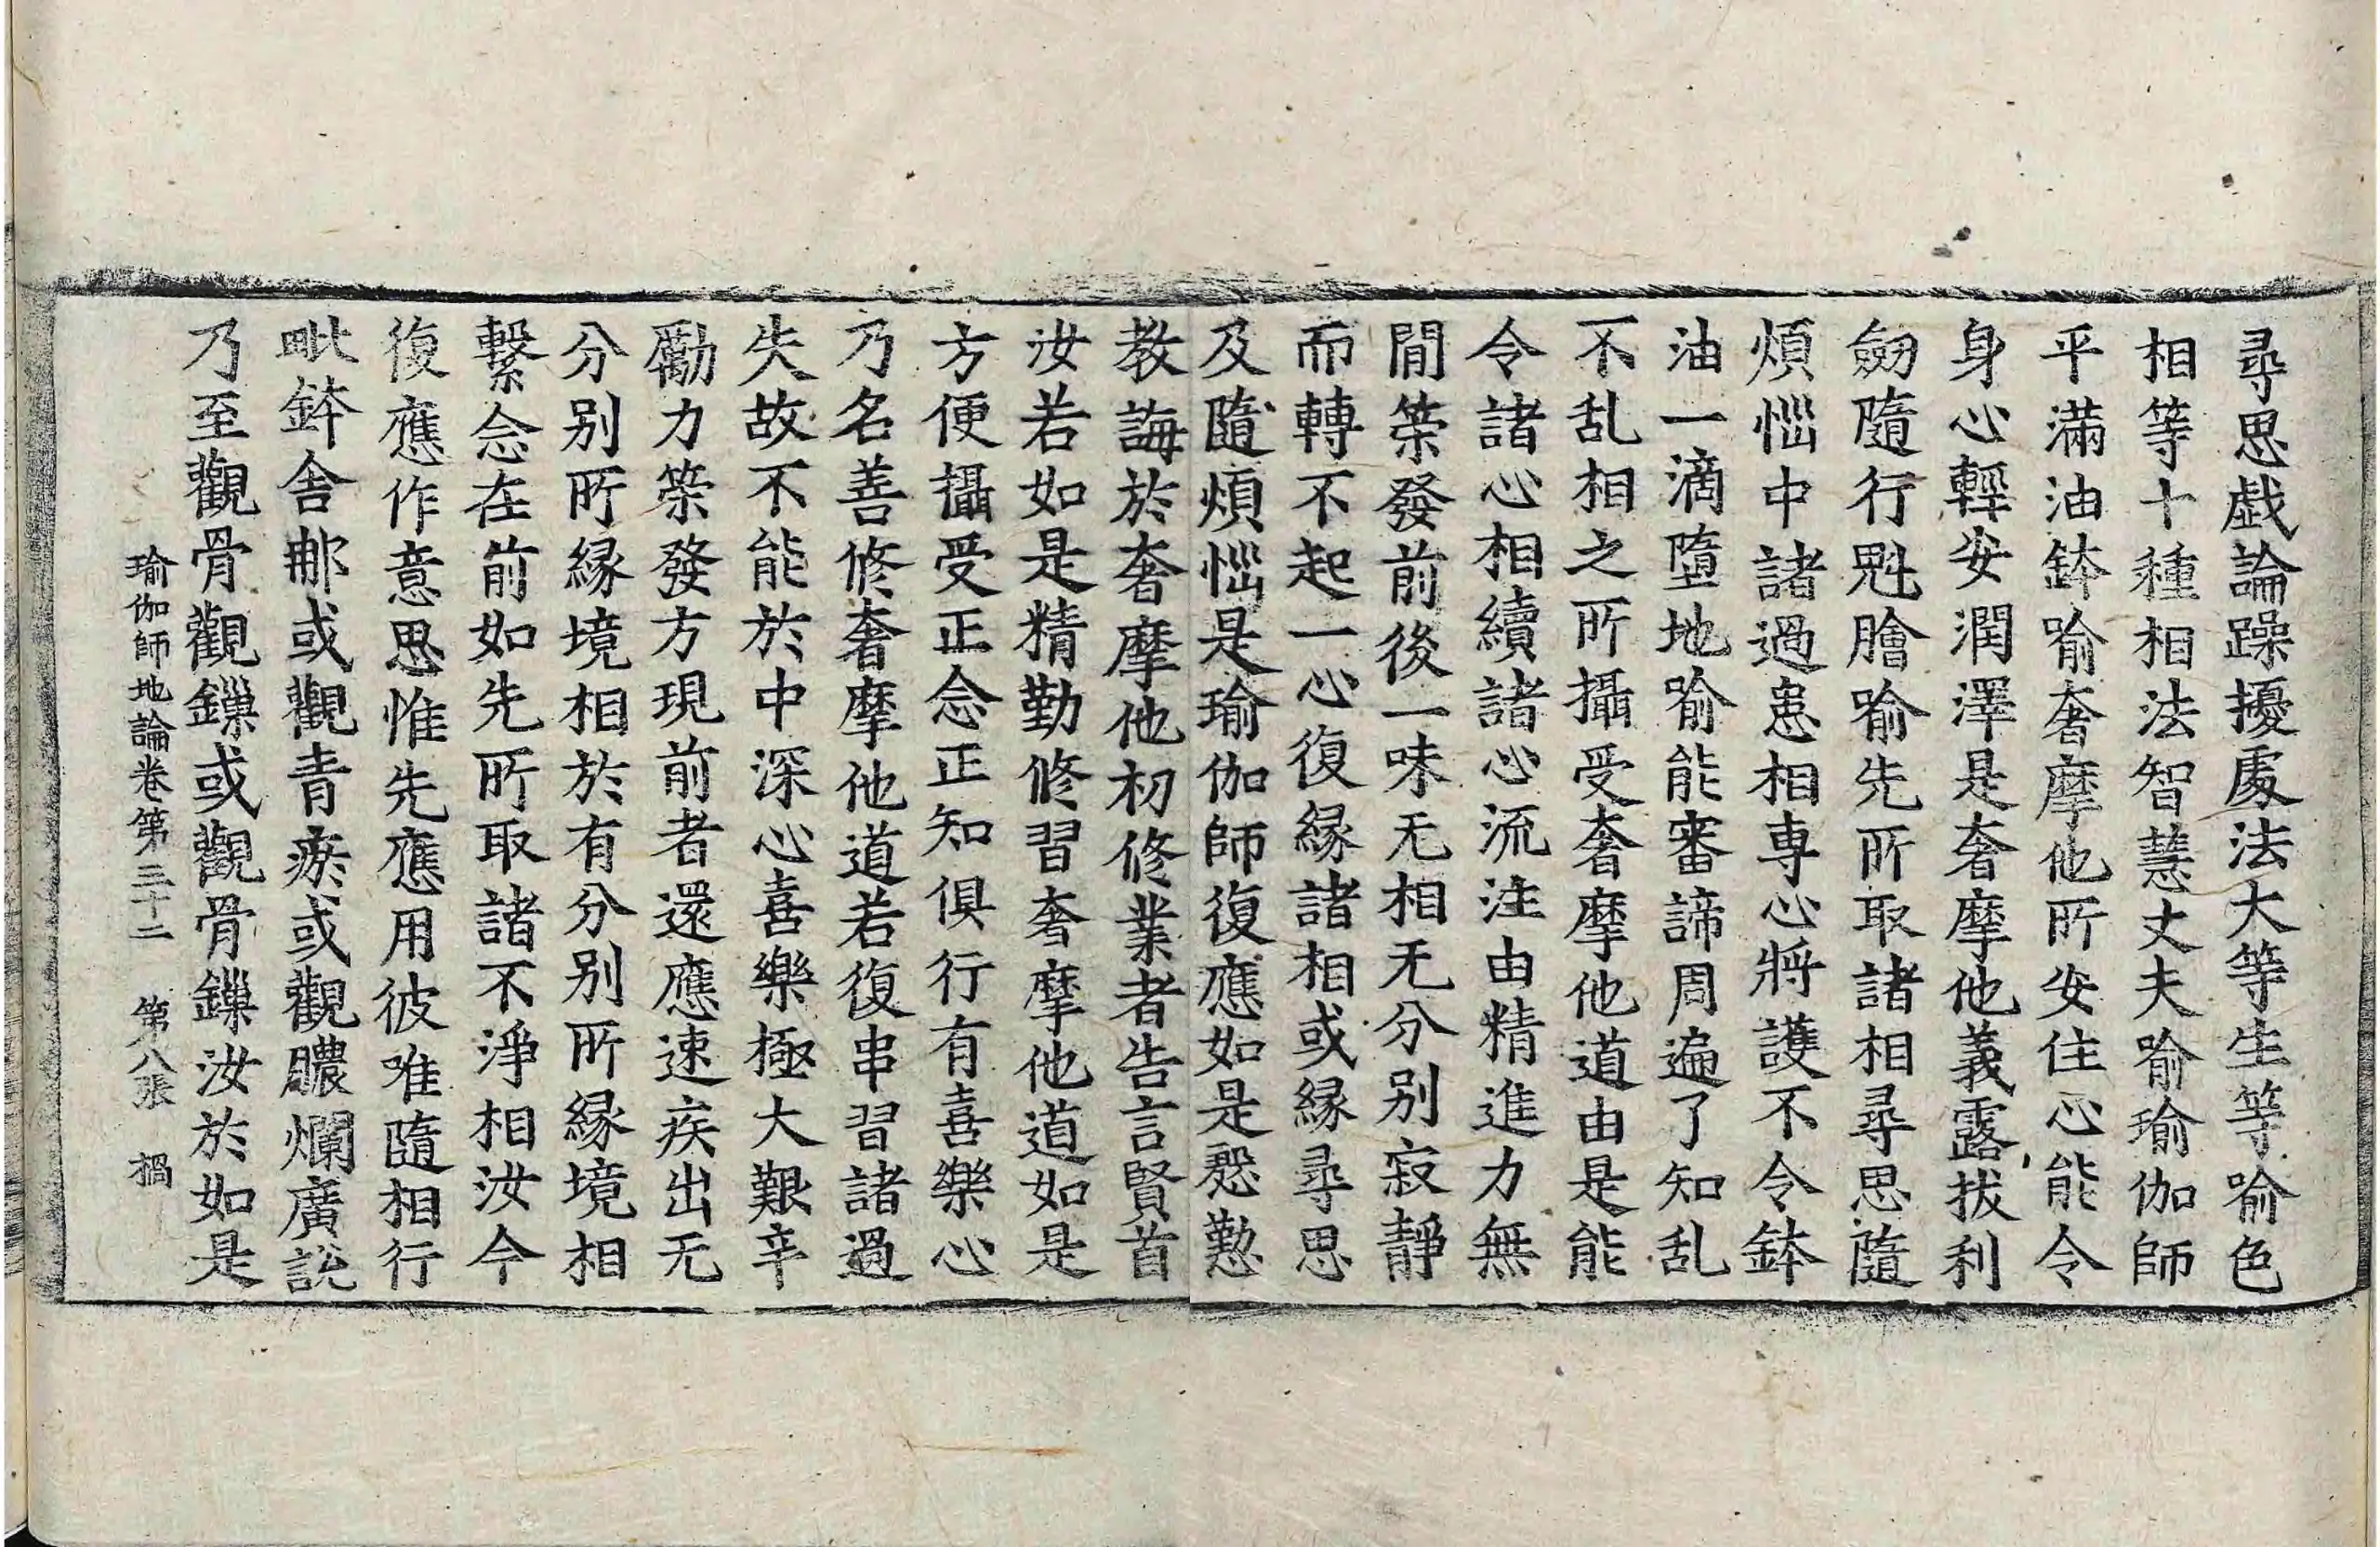 尋思戱論躁擾處法大等生等喻色
相等十種相法智慧丈夫喻瑜伽師
平滿油鉢喻奢摩他所安住心能令
身心輕安潤澤是奢摩他義露拔利
劒隨行魁膾喻先所取諸相尋思隨
煩惱中諸過患相專心將護不令鉢
油一滴墮地喻能審諦周遍了知乱
不乱相之所攝受奢摩他道由是能
令諸心相續諸心流注由精進力無
間䇿發前後一味无相无分别寂靜
而轉不起一心復縁諸相或縁尋思
及隨煩惱是瑜伽師復應如是慇懃
教誨於奢摩他初修業者告言賢首
汝若如是精勤修習奢摩他道如是
方便攝受正念正知俱行有喜樂心
乃名善修奢摩他道若復串習諸過
失故不能於中深心喜樂極大艱辛
勵力䇿發方現前者還應速疾出无
分别所縁境相於有分别所縁境相
繫念在前如先所取諸不淨相汝今
復應作意思惟先應用彼唯隨相行
毗鉢舍那或觀青瘀或觀膿爛廣說
乃至觀骨觀鏁或觀骨鏁汝於如是
瑜伽師地論卷第三十二 第八張 禍